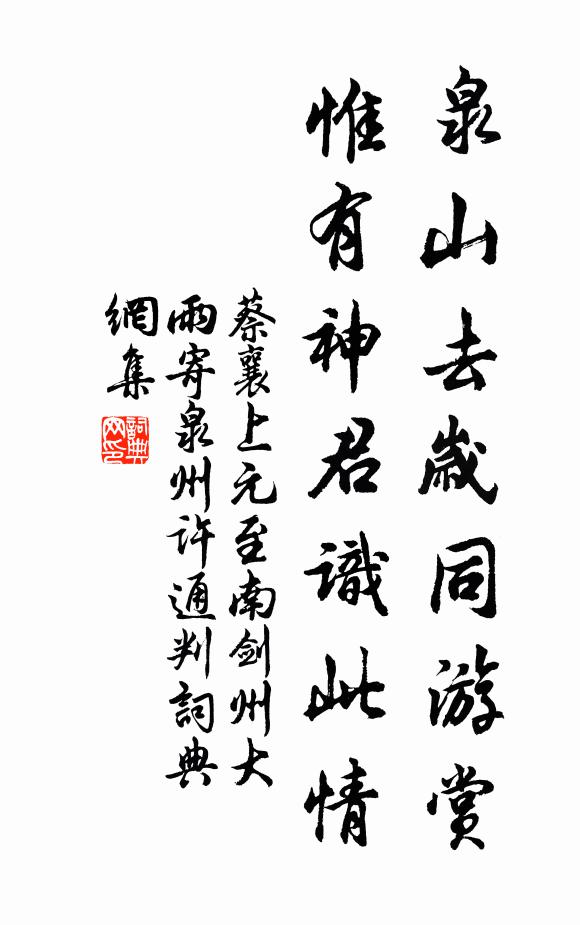 泉山去歲同游賞
惟有神君識此情
蔡襄上元至南劍州大
雨寄泉州許通判詞典
網集
詞典
网印